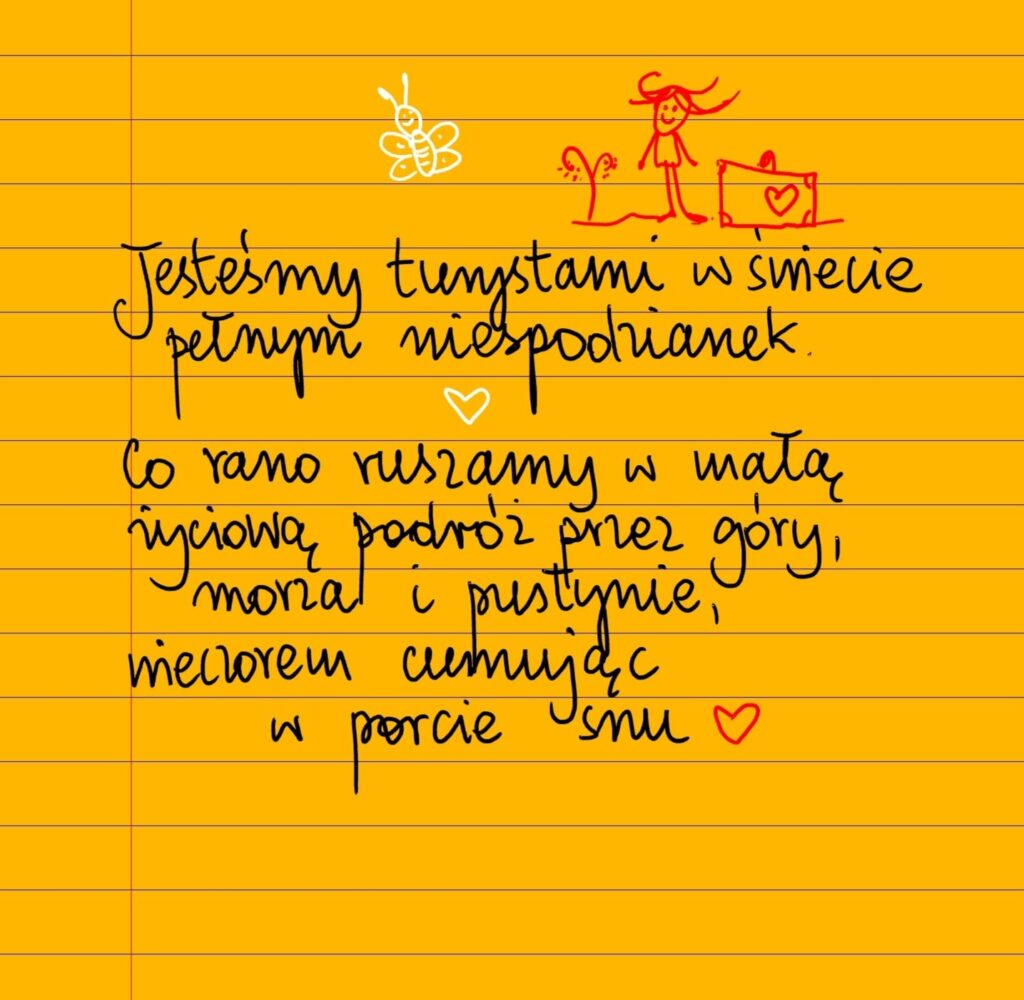 Jesteśmy turystami w świecie
pełnym niespodzianek.
Co rano ruszamy w małą
życiową podróż przez góry,
morza i pustynie,
wieczorem cumując
w porcie snu